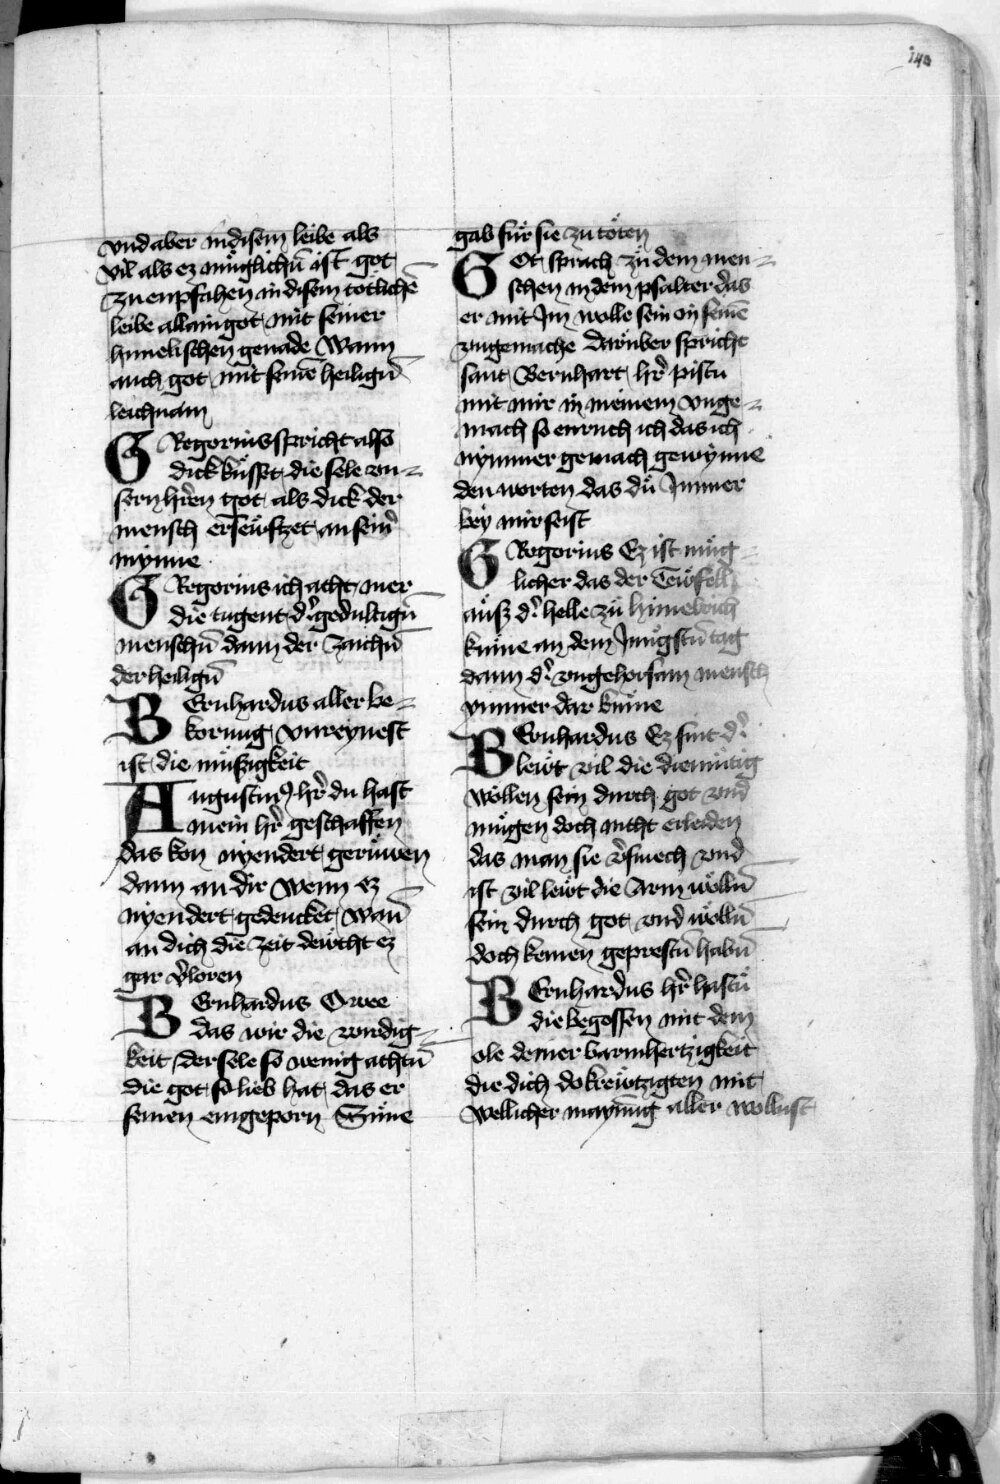 140
vnd aber in disem leibe als
vil als ez müglichn̄ ist got
zu enpfahen in disem totlichē
leibe allain got mit seiner
himelischen genade Wann
auch got mit seinē heilign̄
leichnam
GRegorius spricht also
dick küsset die sele vn-
sern hr̄en got als dick der
mensch erseüftzet an sein̄
mynne
GRegorius ich acht mer
die tugent d' gedultign̄
menschn̄ dann der zaichn̄
der heilign̄
BErnhardus aller be-
korung vnreynest
ist die müßigkeit
Augustin9 hr̄ du hast
mein hr̄ geschaffen
das kon nyendert gerüwen
dann an dir wenn ez
nyendert gedencket wan̄
an dich die zeit dewcht ez
gar v̄loren
BErnhardus Owee
das wir die wirdig-
keit der sele so wenig achtn̄
die got so lieb hat das er
seinen eingeporn Süne
gab für sie zu töten
GOt sprach zü dem men-
schen in dem psalter das
er mit Im wolle sein in seinē
vngemache darüber spricht
sant Bernhart hr̄ pistu
mit mir in meinem vnge-
mach so enruch ich das ich
nymmer gemach gewynne
den worten das dü Immer
bey mir seist
GRegorius Ez ist müg-
licher das der Tewfell
auß d' helle zü himelrich
kume an dem Jungstn̄ tag
dann d' vngehorsam mensch
ymmer dar kume
BErnhardus Ez sint d'
lewt vil die diemütig
wöllen sein durch got vnd
mügen doch nicht erleiden
das man sie v̄smech vnd
ist vil lewt die Arm wölln̄
sein durch got vnd wölln̄
doch keinen geprestn̄ habn̄
BErnhardus hr̄ hastu
die begossen mit dem
ole deiner barmhertzigkeit
die dich do krewtzigten mit
wellicher maynūg aller wollust